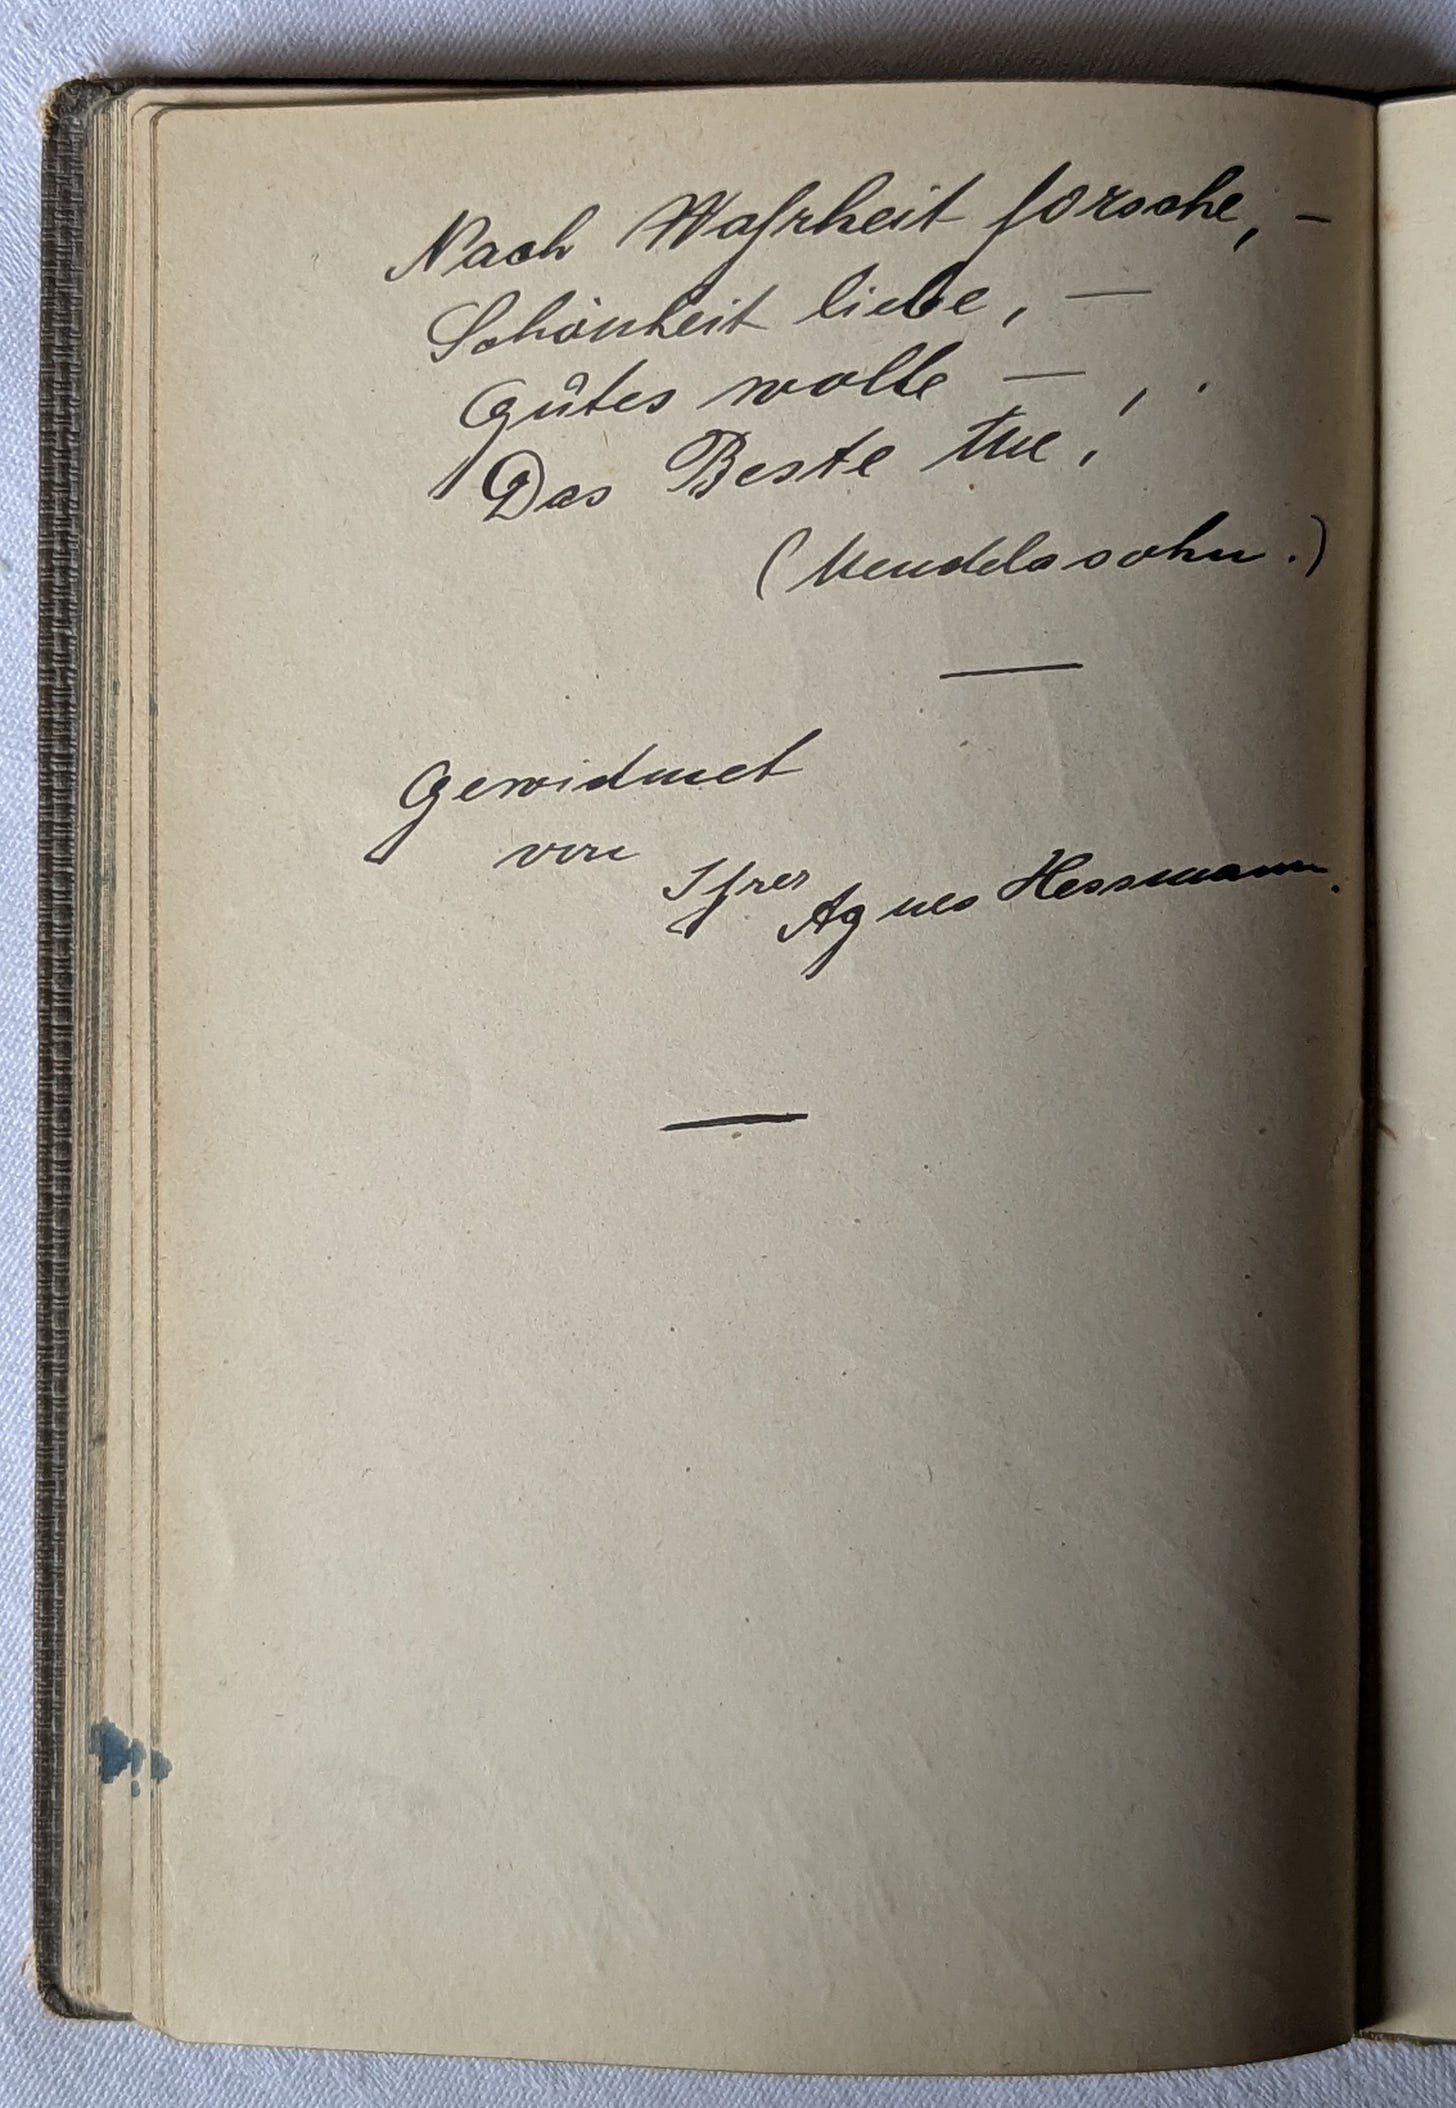 Nach Wahrheit forsche, –
Schönheit liebe, —
Gutes wolle — ,
Das Beste tue!
(Mendelssohn.)
Gewidmet
von
Ihrer Agnes Hessmann.